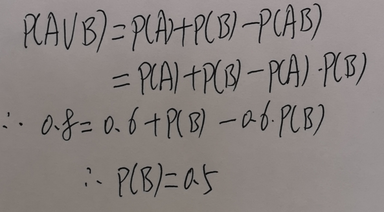 P(A∪B)=P(A)+P(B)-P(AB)
=P(A)+P(B)-P(A)·P(B)
∴ 0.8=0.6+P(B)-0.6·P(B)
∴ P(B)=0.5